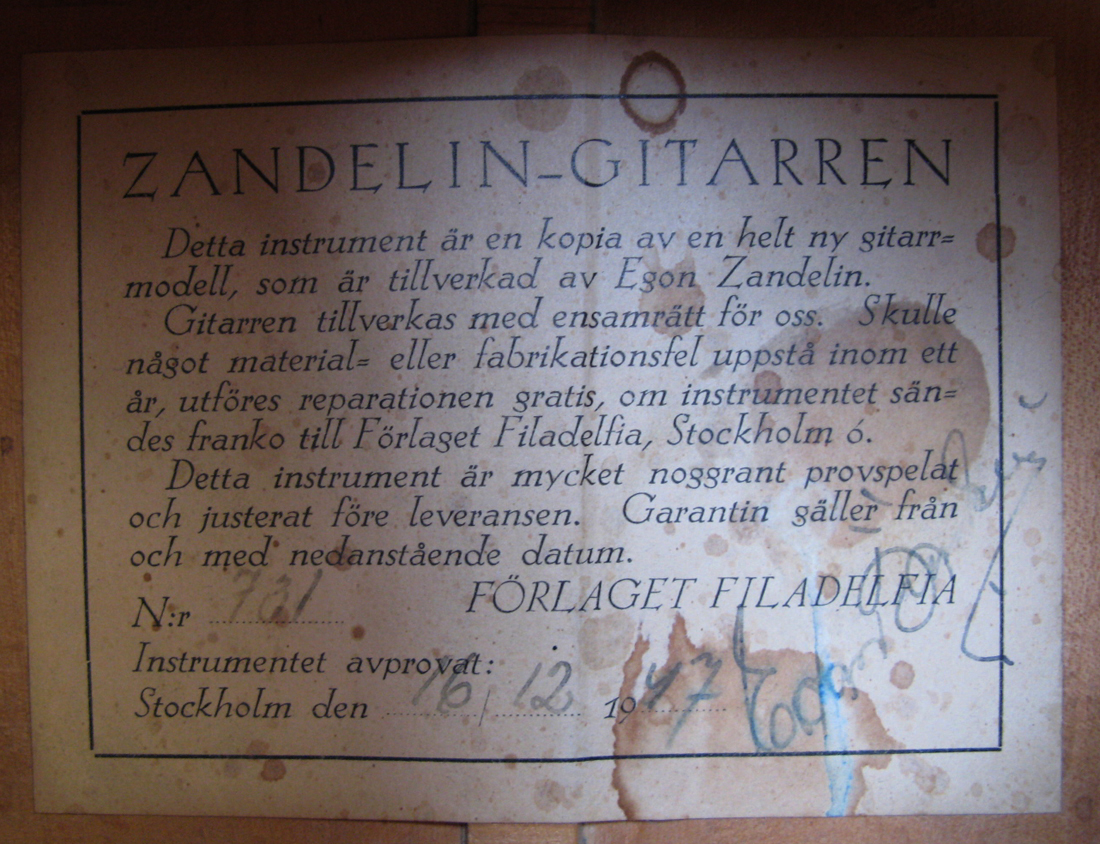 ZANDELIN-GITARREN
Detta instrument är en kopia av en helt ny gitarr=
modell, som är tillverkad av Egon Zandelin.
Gitarren tillverkas med ensamrätt för oss. Skulle
något material= eller fabrikationsfel uppstå inom ett
år, utföres reparationen gratis, om instrumentet sän=
des franko till Förlaget Filadelfia, Stockholm 6.
Detta instrument är mycket noggrant provspelat
och justerat före leveransen. Garantin gäller från
och med nedanstående datum.
FÖRLAGET FILADELFIA
N:r 731
Instrumentet avprovat:
Stockholm den 16/12 1947